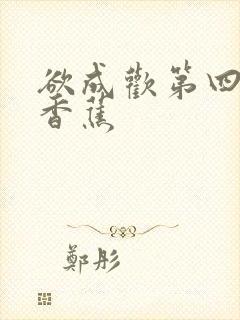 欲成歡第四
香蕉
鄭彤